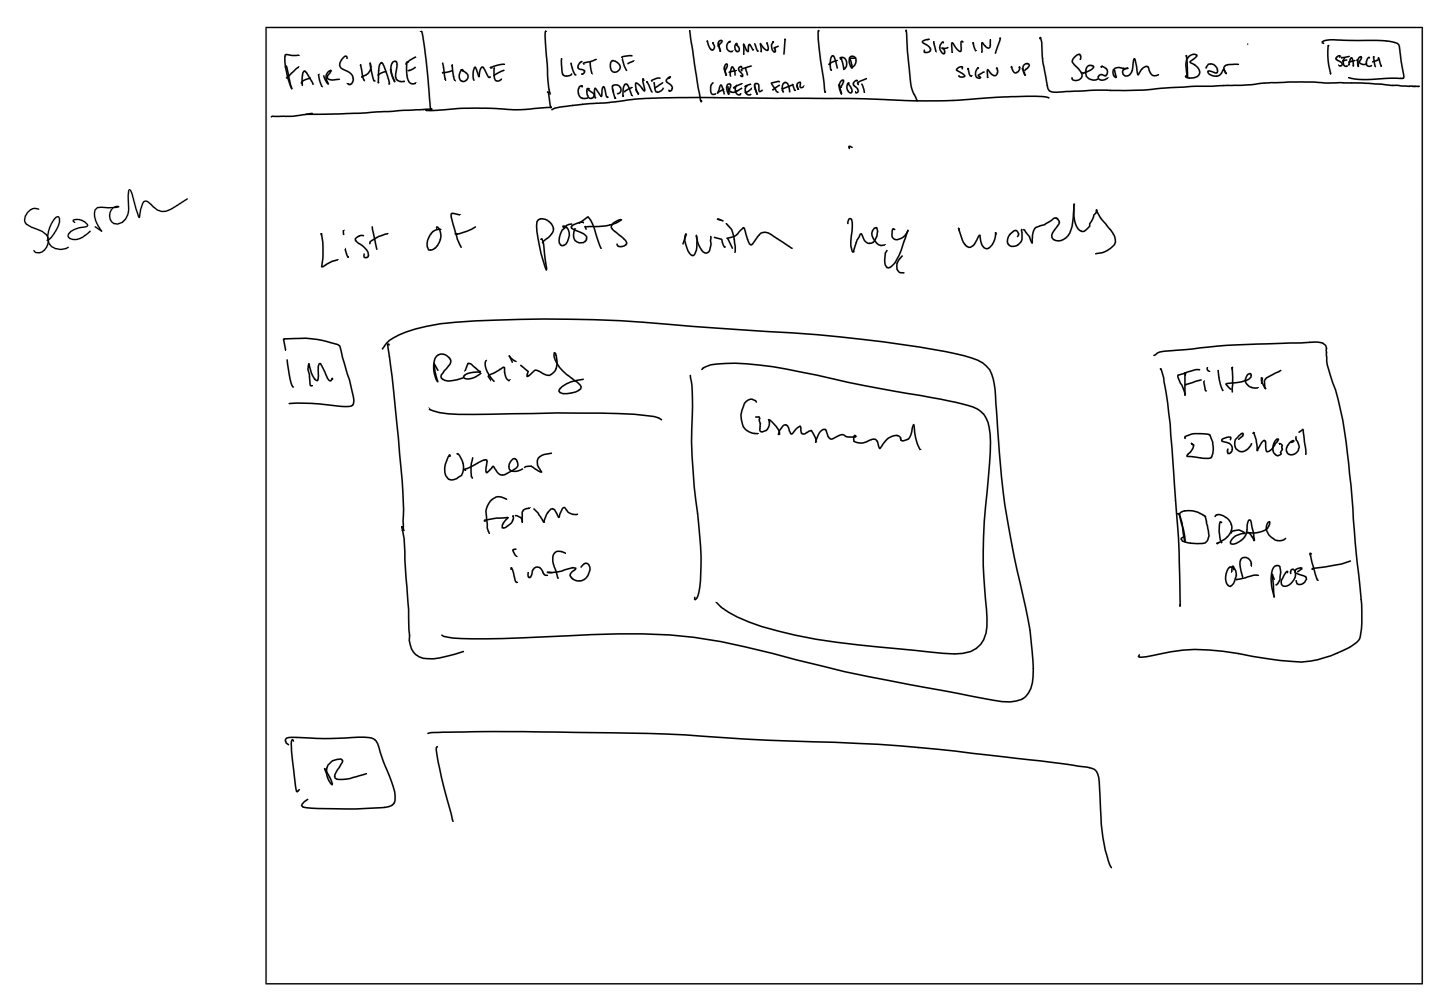 FAIRSHARE
HOME
LIST OF
COMPANIES
UPCOMING/
PAST
CAREER FAIR
ADD
POST
SIGN IN/
SIGN UP
Search Bar
SEARCH
Search
List of posts with key words
M
Rating
Other
form
info
Comment
Filter
school
Date
of post
R